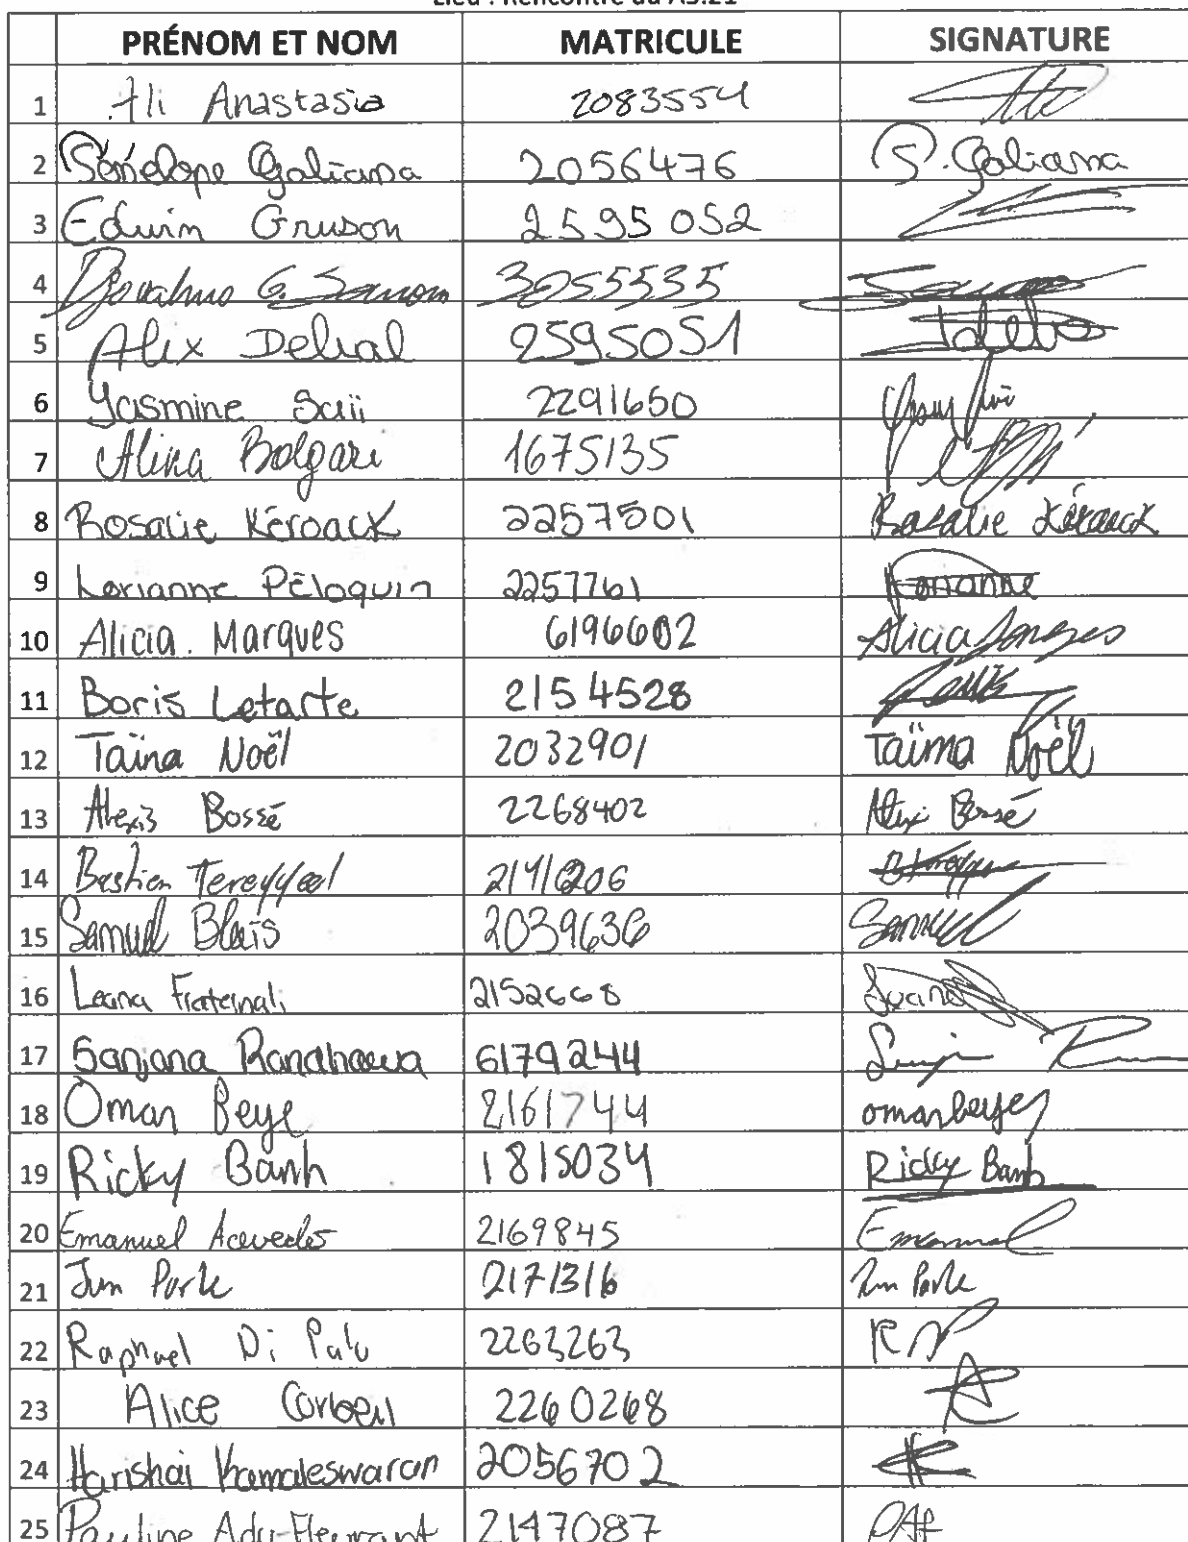 Lieu : Rencontre au A3.21
PRÉNOM ET NOM MATRICULE SIGNATURE
1 Ali Anastasia 2083554
2 Pénélope Galiana 2056476 P. Galiana
3 Edwin Gruson 2595052
4 G. 3055535
5 Alix Delval 2595051
6 Yasmine Saii 2291650
7 Alina Bolgari 1675135
8 Rosalie Kéroack 2257501 Rosalie Kéroack
9 Lorianne Péloquin 2257761 Lorianne
10 Alicia Marques 6196602 Alicia
11 Boris Letarte 2154528
12 Taïna Noël 2032901 Taïna Noël
13 Alexis Bossé 2268402 Alexis Bossé
14 Bastien 2141206
15 Samuel Blais 2039636 Samuel
16 Leana Fraternali 2152668
17 Sanjana Randhawa 6179244
18 Omar Beye 2161744 omar beye
19 Ricky Banh 1815034 Ricky Banh
20 Emanuel Acevedo 2169845 Emanuel
21 Jun Park 2171316 Jun Park
22 Raphael Di Palo 2263263
23 Alice Corbeil 2260268 AC
24 Harishai Kamaleswaran 2056702
25 Pauline 2147087 PAF